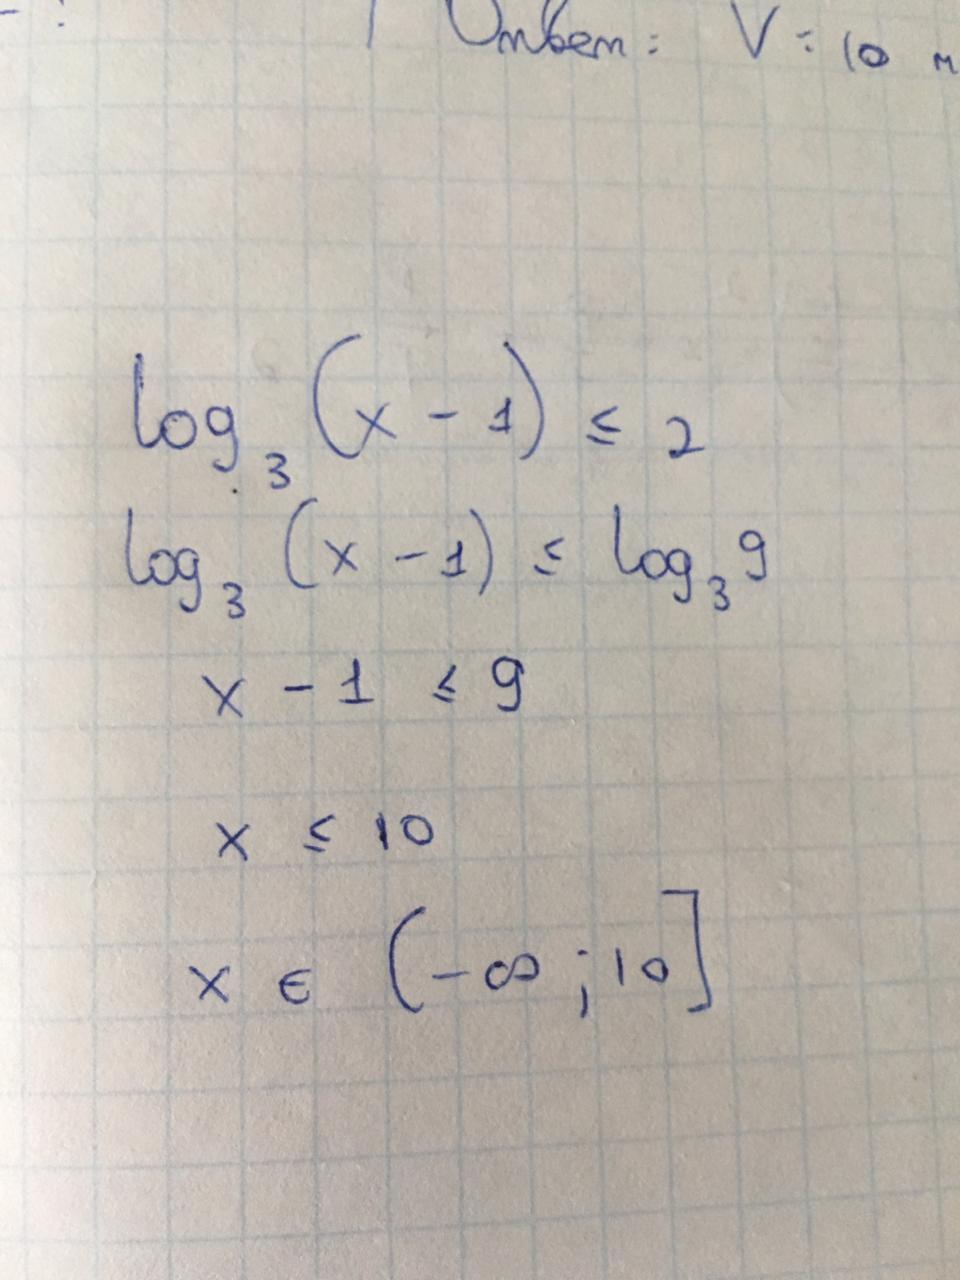 Ответ: V = 10 м
log₃ (x - 1) ≤ 2
log₃ (x - 1) ≤ log₃ 9
x - 1 ≤ 9
x ≤ 10
x ∈ (-∞ ; 10]